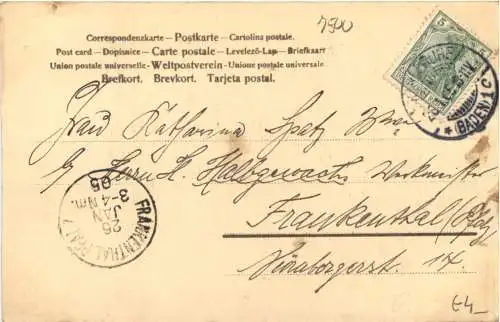 7500
Correspondenzkarte – Postkarte – Cartolina postale.
Post card – Dopisnice – Carte postale – Levelező-Lap – Briefkaart
Union postale universelle – Weltpostverein – Unione postale universale
Brefkort. Brevkort. Tarjeta postal.
5
(BADEN) 1 C
Frau Katharina Spatz
Herrn H. Halbgewachs Werkmeister
Frankenthal (Pfalz)
14.
FRANKENTHAL (PFALZ)
25
JAN
3-4 Nm.
05
E4_